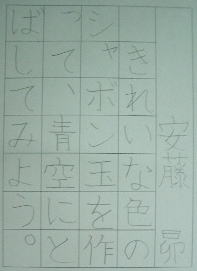 安藤 昴
きれいな色の
シャボン玉を作
って、青空にと
ばしてみよう。